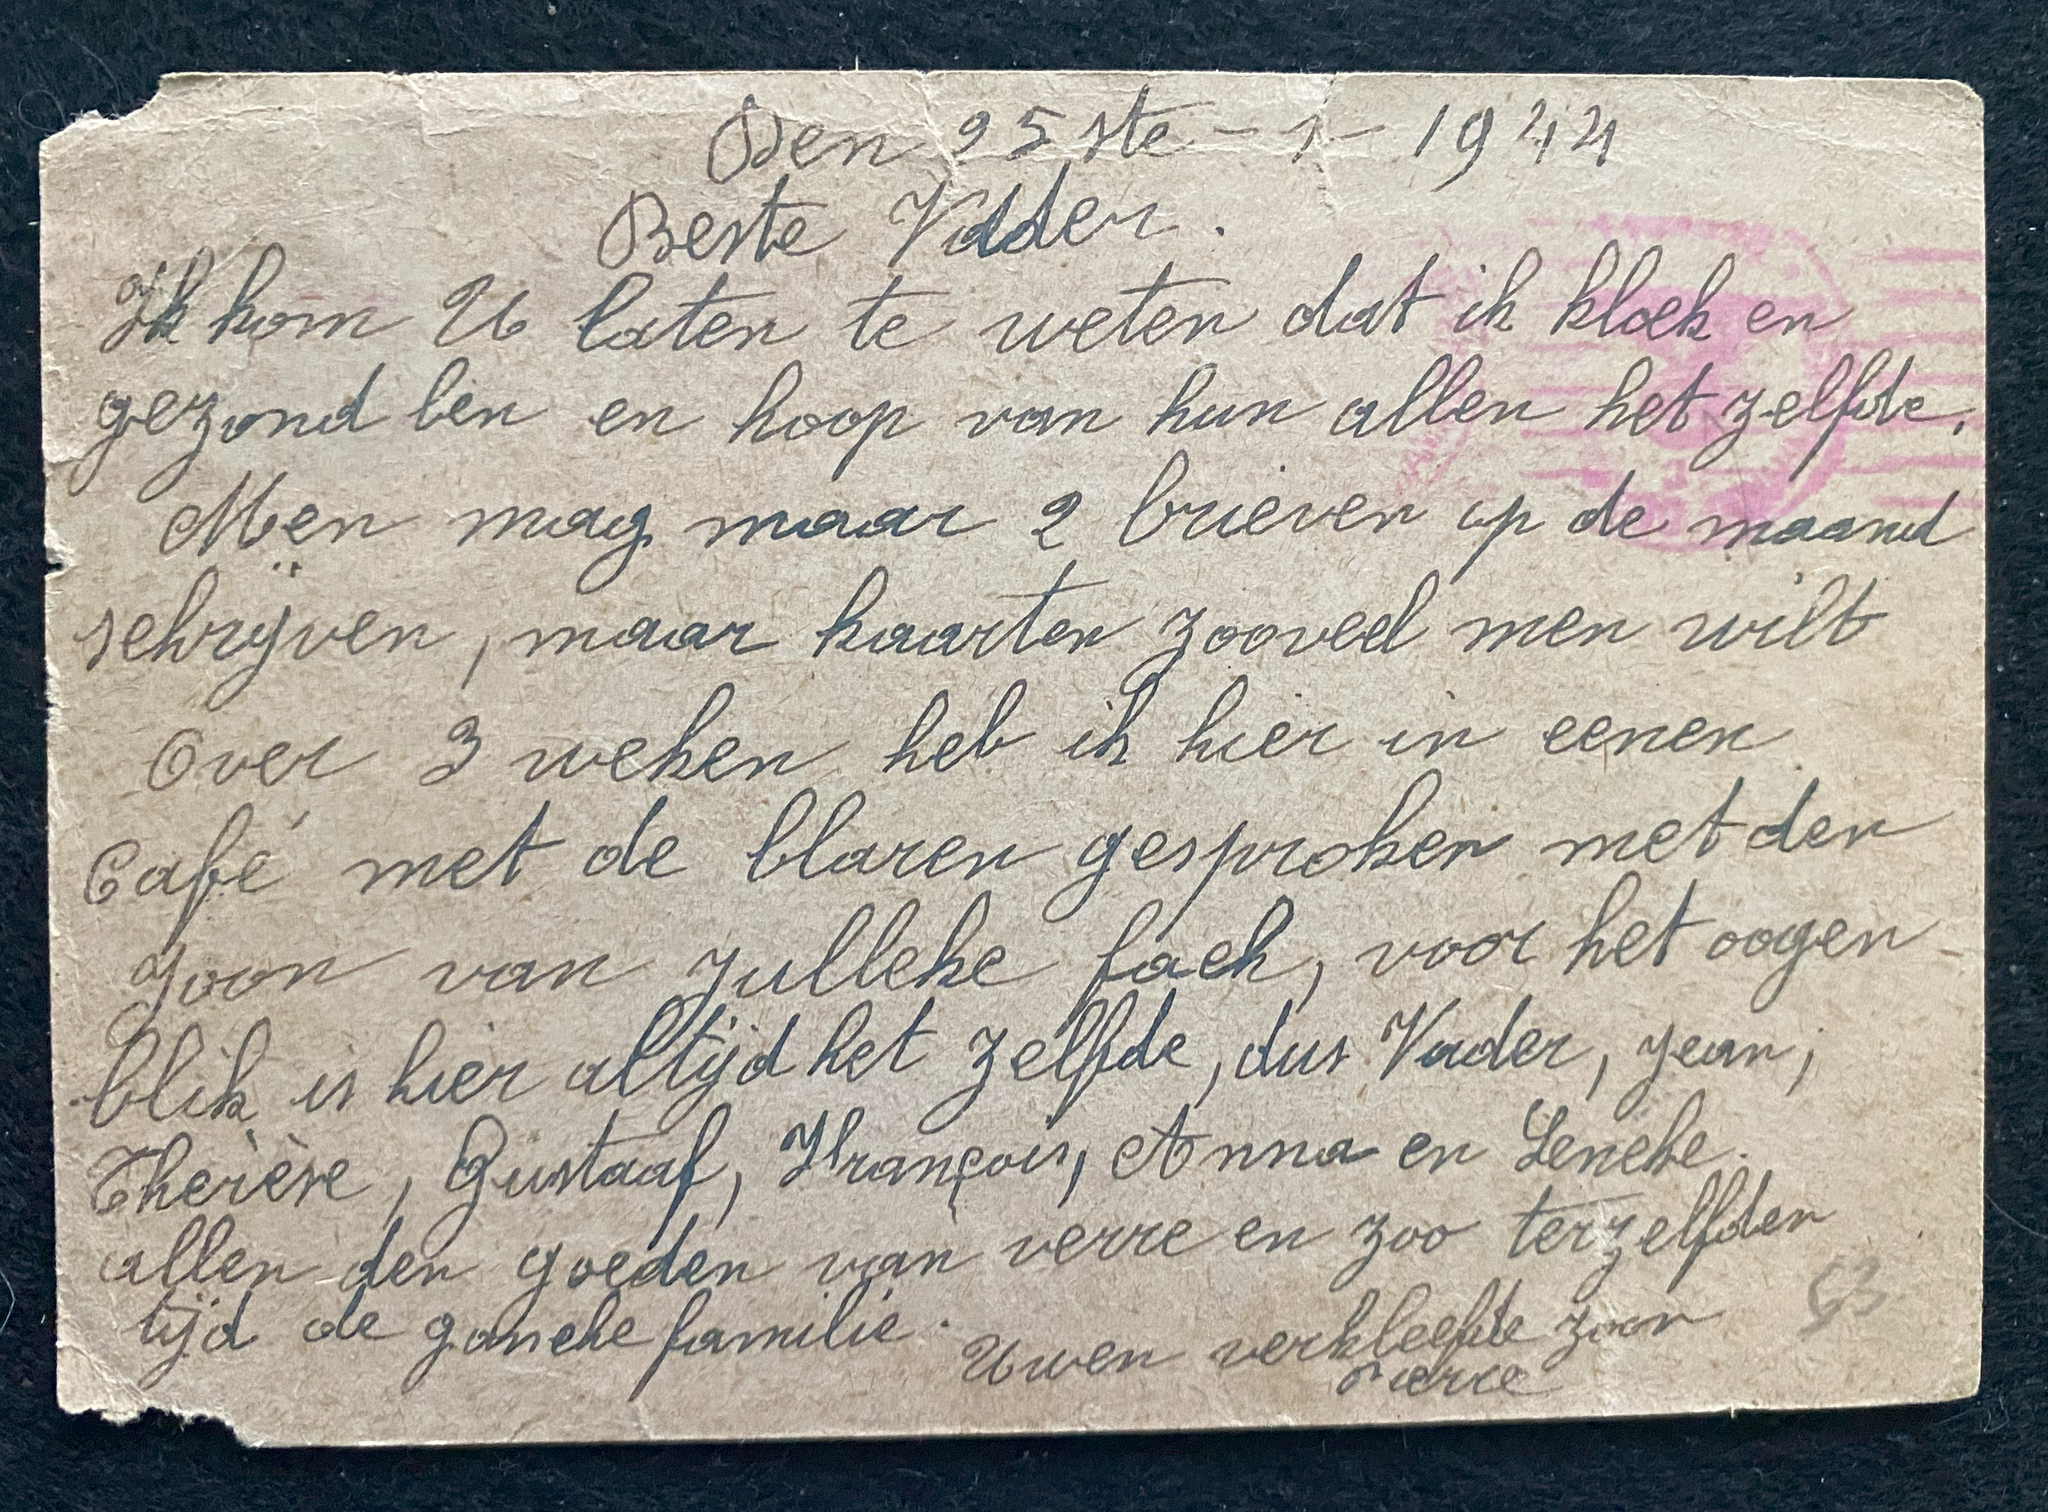 Den 25ste - 1 - 1944
Beste Vader.
Ik kom U laten te weten dat ik kloek en
gezond ben en hoop van hun allen het zelfde.
Men mag maar 2 brieven op de maand
schrijven, maar kaarten zooveel men wilt
Over 3 weken heb ik hier in eenen
Café met de blaren gesproken met den
zoon van Julleke fack, voor het oogen
blik is hier altijd het zelfde, dus Vader, Jean,
Therèse, Gustaaf, François, Anna en Leneke.
allen den goeden van verre en zoo terzelfden
tijd de gansche familie.
Uwen verkleefde zoon
Pierre
63